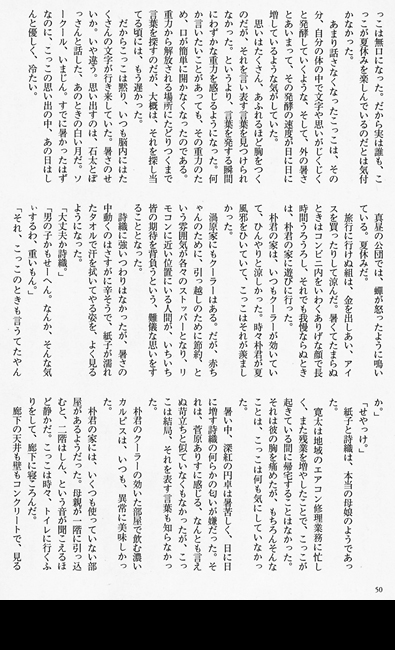 っこは無口になった。だから実は誰も、こ
っこが夏休みを楽しんでいるのだとは気付
かなかった。
　あまり話さなくなったこっこは、その
分、自分の体の中で文字や思いがじくじく
と発酵していくような、そして、外の暑さ
とあいまって、その発酵の速度が日に日に
増しているような気がしていた。
　思いはたくさん、あふれるほど胸をつく
のだが、それを言い表す言葉を見つけられ
なかった。というより、言葉を発する瞬間
にわずかな重力を感じるようになった。何
か言いたいことがあっても、その重力のた
め、口が簡単に開かなくなったのである。
重力から解放される場所にたどりつくまで
言葉を探すのだが、大概は、それを探し当
てる頃には、もう遅かった。
　だからこっこは黙り、いつも脳内にはた
くさんの文字が行き来していた。暑さのせ
いか。いや違う。思い出すのは、石太とぽ
っさんと話した、あのときの白い月だ。ソ
ークール、いまじん。すでに暑かったはず
なのに、こっこの思い出の中、あの日はし
んと優しく、冷たい。
　真昼の公団では、蟬が怒ったように鳴い
ている。夏休みだ。
　旅行に行けぬ組は、金を出しあい、アイ
スを買ったりして涼んだ。暑くてたまらぬ
ときはコンビニ内をいわくありげな顔で長
時間うろうろし、それでも我慢ならぬとき
は、朴君の家に遊びに行った。
　朴君の家は、いつもクーラーが効いてい
て、ひんやりと涼しかった。時々朴君が夏
風邪をひいていて、こっこはそれが羨まし
かった。
　渦原家にもクーラーはある。だが、赤ち
ゃんのために、引っ越しのために節約、と
いう雰囲気が各々のストッパーとなり、リ
モコンに近い位置にいる人間が、いちいち
皆の期待を背負うという、難儀な思いをす
ることとなった。
　詩織に強いつわりはなかったが、暑さの
中動くのはさすがに辛そうで、紙子が濡れ
たタオルで汗を拭いてやる姿を、よく見る
ようになった。
「大丈夫か詩織。」
「男の子かもせーへん。なんか、そんな気
ぃするわ、重いもん。」
「それ、こっこのときも言うてたやん
か。」
「せやっけ。」
　紙子と詩織は、本当の母娘のようであっ
た。
　寛太は地域のエアコン修理業務に忙し
く、また残業を増やしたことで、こっこが
起きている間に帰宅することはなかった。
それは彼の胸を痛めたが、もちろんそんな
ことは、こっこは何も気にしていなかっ
た。
　暑い中、深紅の円卓は暑苦しく、日に日
に増す詩織の何らかの匂いが嫌だった。そ
れは、菅原ありすに感じる、なんとも言え
ぬ苛立ちと似ていなくもなかったが、こっ
こは結局、それを表す言葉も知らなかっ
た。
　朴君のクーラーの効いた部屋で飲む濃い
カルピスは、いつも、異常に美味しかっ
た。
　朴君の家には、いくつも使っていない部
屋があるようだった。母親が一階に引っ込
むと、二階はしん、という音が聞こえるほ
ど静かだ。こっこは時々、トイレに行くふ
りをして、廊下に寝ころんだ。
　廊下の天井も壁もコンクリートで、見る
50